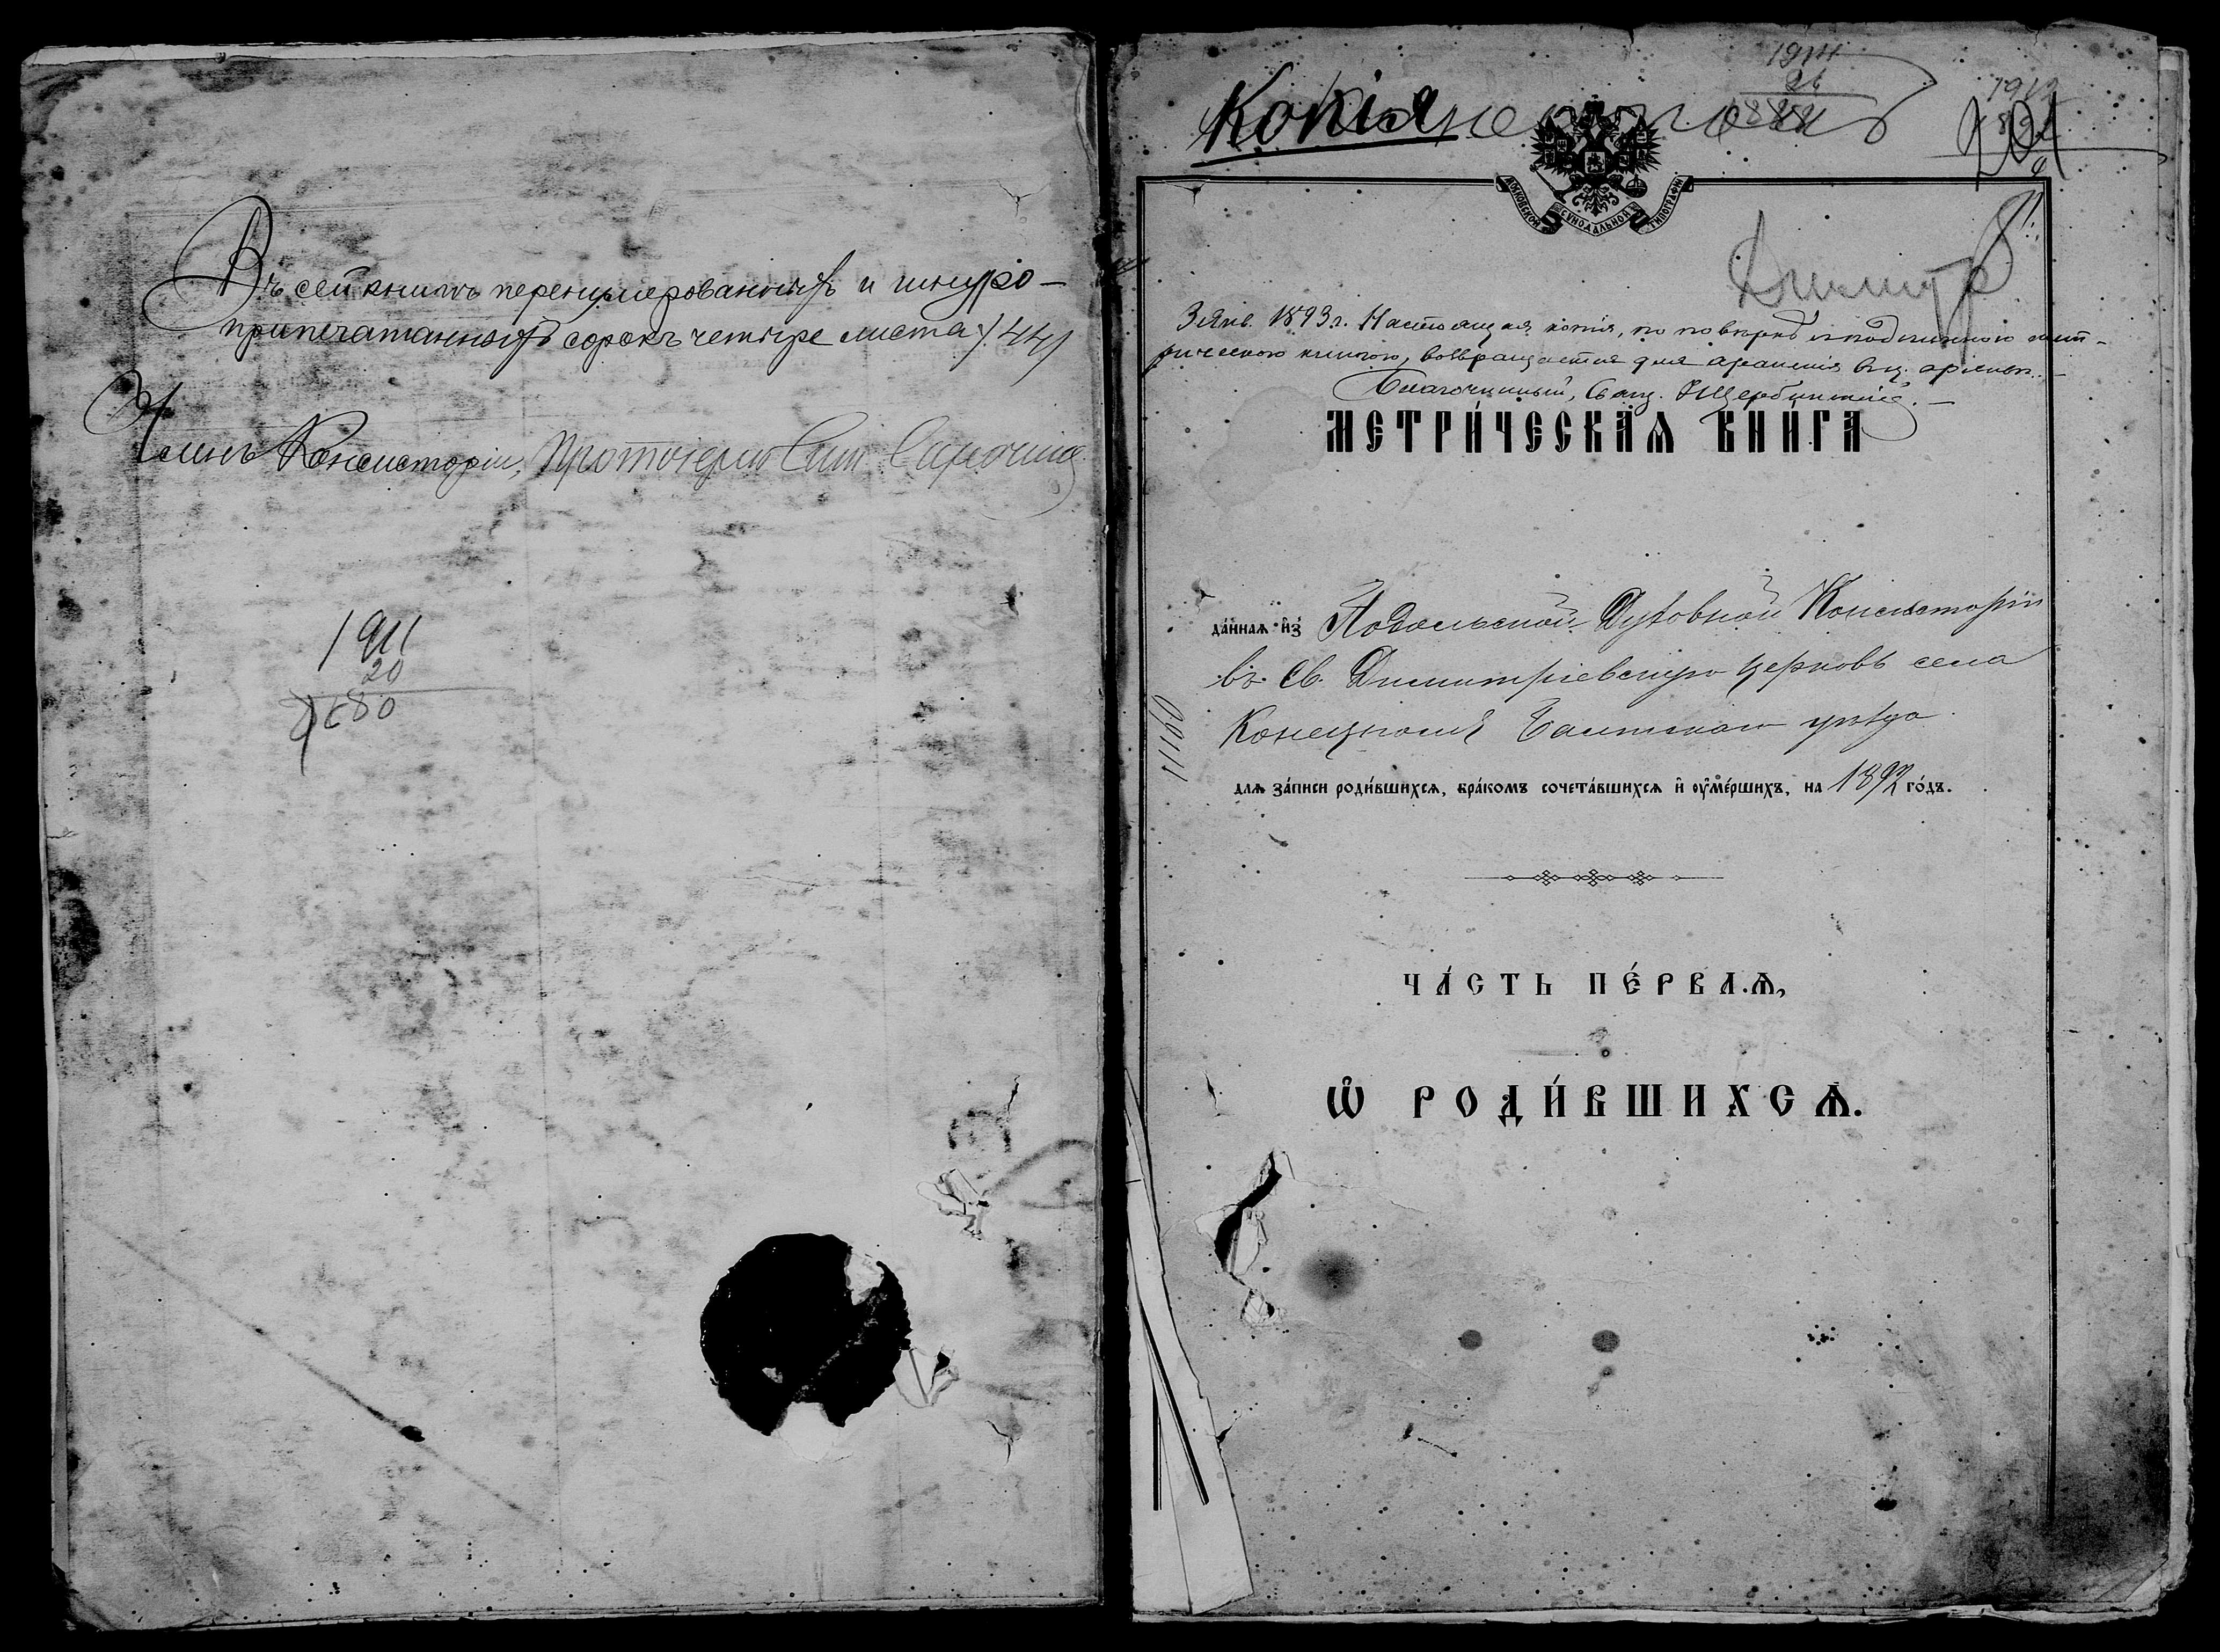 Въ сей книгѣ перенумерованныхъ и шнуро-
припечатанныхъ сорокъ четыре листа /44/
Членъ Консисторіи, Протоіерей
1911
20
Копія
1914
26
МОСКОВСКОЙ СѴНОДАЛЬНОЙ ТИПОГРАФІИ
3 Янв. 1893 г. Настоящая копія, по повѣркѣ съ подлинною мет-
рическою книгою, возвращается для храненія въ ц. архивѣ.
Благочинный, Свящ.
МЕТРИ́ЧЕСКАѦ КНИ́ГА
да́ннаѧ и҆з̾ Подольской Духовной Консисторіи
въ Св. Димитріевскую церковь села
Конецполя Балтскаго уѣзда
длѧ за́писи роди́вшихсѧ, бра́комъ сочета́вшихсѧ и҆ ᲂу҆ме́ршихъ, на 1892 го́дъ.
11160
ЧА́СТЬ ПЕ́РВАѦ,
Ѡ҆ РОДИ́ВШИХСѦ.